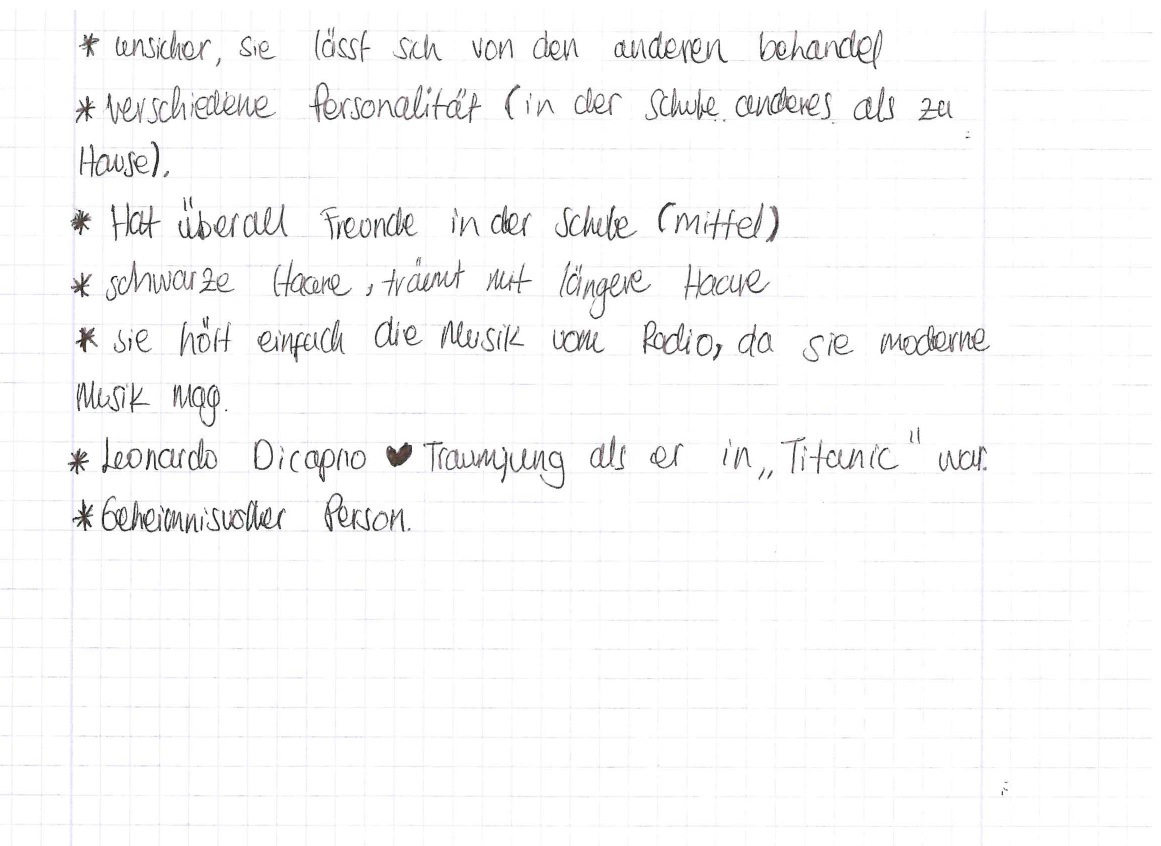 * unsicher, sie lässt sich von den anderen behandel
* verschiedene Personalität (in der Schule anderes als zu
Hause).
* Hat überall Freunde in der Schule (mittel)
* schwarze Haare, träumt mit längere Haare
* sie hört einfach die Musik vom Radio, da sie moderne
Musik mag.
* Leonardo Dicaprio ♥ Traumjung als er in „Titanic" war.
* Geheimnisvoller Person.